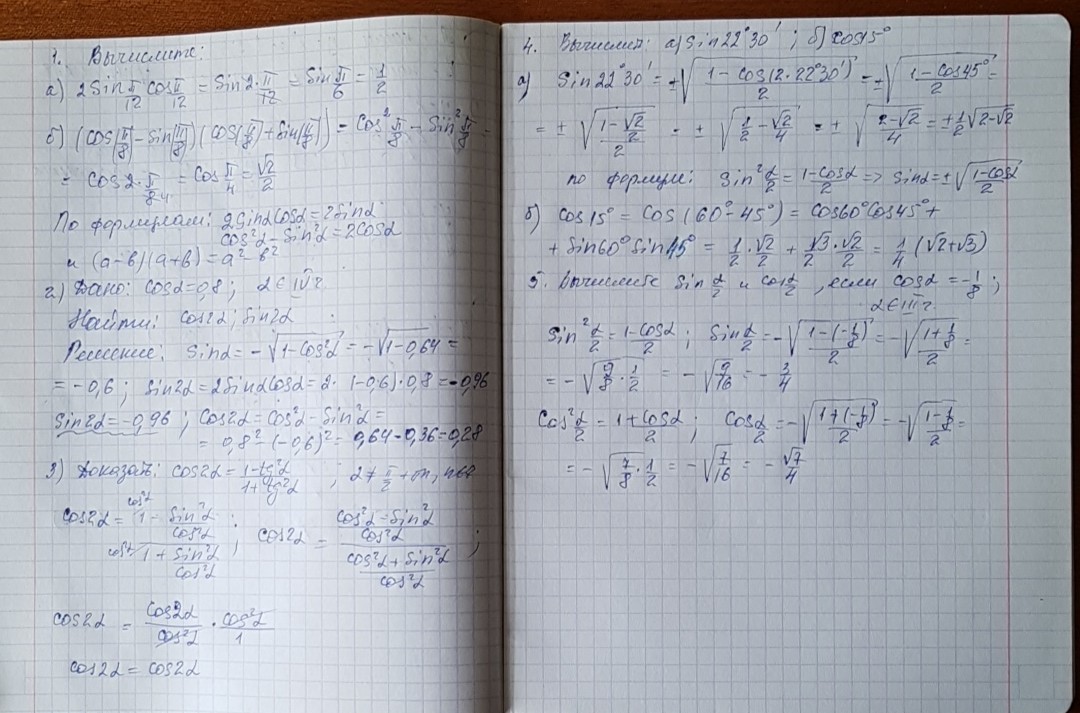 1. Вычислите:
а) 2Sin π/12 cos π/12 = Sin 2·π/12 = Sin π/6 = 1/2
б) (cos π/8 - sin π/8)(cos π/8 + sin π/8) = Cos² π/8 - Sin² π/8 =
= cos 2·π/8 = cos π/4 = √2/2
По формулам: 2Sinα cosα = 2Sinα
cos²α - Sin²α = 2cosα
и (а-в)(а+в) = а²-в²
2.) Дано: cosα = 0,8; α ∈ IV г.
Найти: cos2α; sin2α
Решение: Sinα = -√(1-cos²α) = -√(1-0,64) =
= -0,6; Sin2α = 2Sinα cosα = 2·(-0,6)·0,8 = -0,96
Sin2α = -0,96; Cos2α = Cos²α - Sin²α =
= 0,8² - (-0,6)² = 0,64 - 0,36 = 0,28
3) Доказать: cos2α = (1-tg²α)/(1+tg²α); α ≠ π/2 + πn, n∈
cos2α = (1 - Sin²α/cos²α)/(1 + Sin²α/cos²α); cos2α = ((cos²α - Sin²α)/cos²α)/((cos²α + Sin²α)/cos²α);
cos2α = cos2α/cos²α · cos²α/1
cos2α = cos2α
4. Вычислит: а) Sin 22°30'; б) cos15°
а) Sin 22°30' = ±√((1 - Cos(2·22°30'))/2) = ±√((1 - Cos 45°)/2) =
= ±√((1 - √2/2)/2) = ±√(1/2 - √2/4) = ±√((2-√2)/4) = ±1/2 √(2-√2)
по формуле: Sin² α/2 = (1-cosα)/2 => Sinα = ±√((1-cosα)/2)
б) Cos15° = Cos(60°-45°) = Cos60°Cos45° +
+ Sin60° Sin45° = 1/2·√2/2 + √3/2·√2/2 = 1/4(√2+√3)
5. Вычислите Sin α/2 и cos α/2, если cosα = -1/8;
α ∈ III г.
Sin² α/2 = (1-cosα)/2; Sin α/2 = -√((1-(-1/8))/2) = -√((1+1/8)/2) =
= -√(9/8 · 1/2) = -√(9/16) = -3/4
Cos² α/2 = (1+cosα)/2; Cos α/2 = -√((1+(-1/8))/2) = -√((1-1/8)/2) =
= -√(7/8 · 1/2) = -√(7/16) = -√7/4